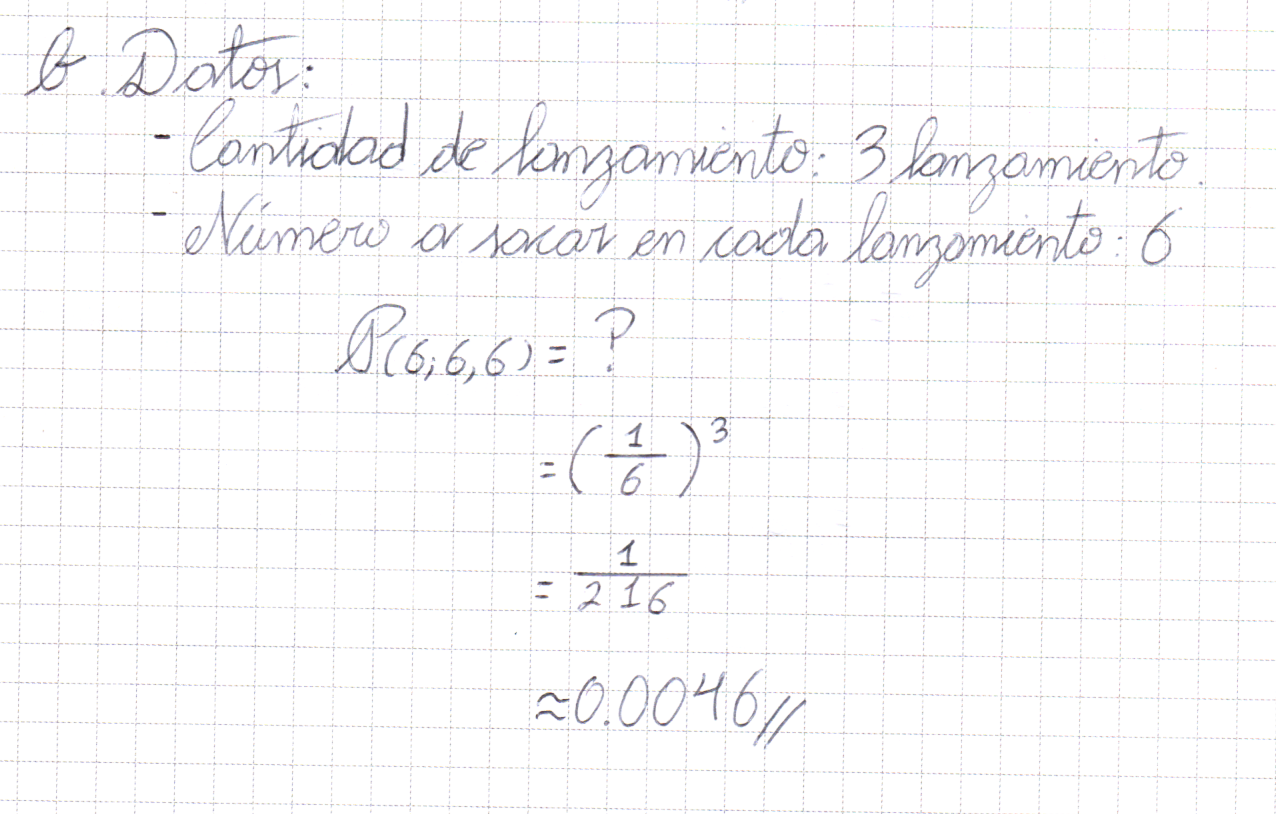 b. Datos:
- Cantidad de lanzamiento: 3 lanzamiento.
- Número a sacar en cada lanzamiento: 6
P(6;6,6) = ?
= (1/6)^3
= 1/216
≈0.0046//